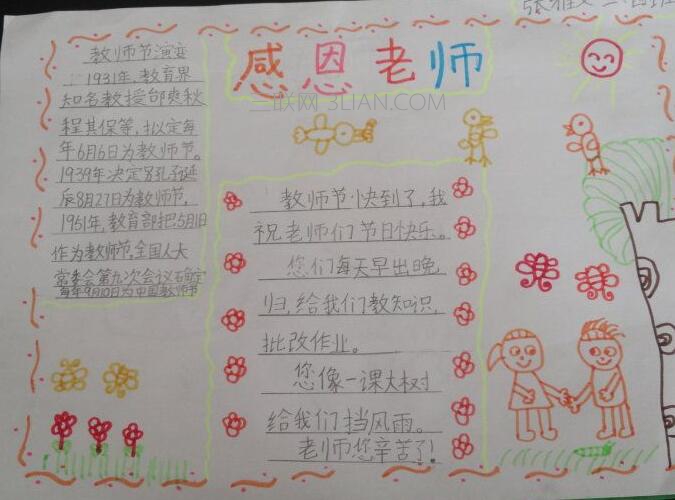 感恩老师
三联网 3LIAN.COM
教师节演变
:1931年,教育界
知名教授邰爽秋
程其保等,拟定每
年6月6日为教师节。
1939年决定另孔子诞
辰8月27日为教师节,
1951年,教育部把5月1日
作为教师节,全国人大
常委会第九次会议确定
每年9月10日为中国教师节
教师节快到了,我
祝老师们节日快乐。
您们每天早出晚
归,给我们教知识,
批改作业。
您像一课大树
给我们挡风雨。
老师您辛苦了!